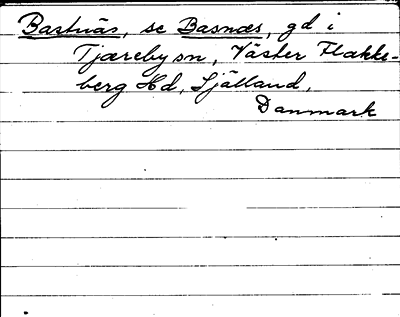 Bastnäs, se Basnæs, gd i
Tjærebysn, Väster Flakke-
berg Hd, Själland,
Danmark